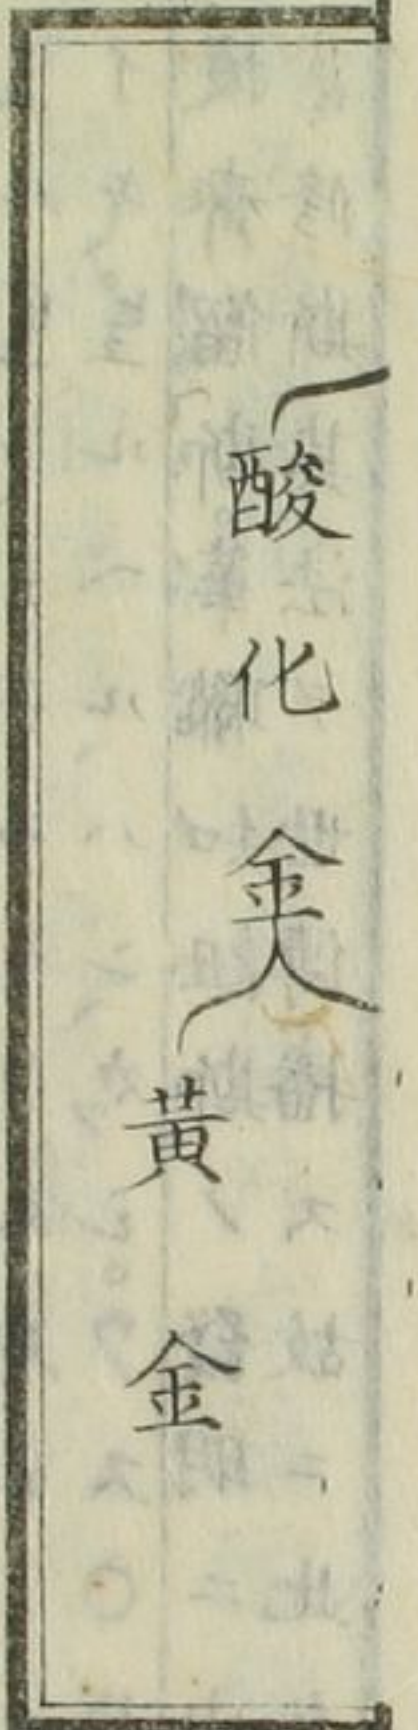 酸化金
黃金